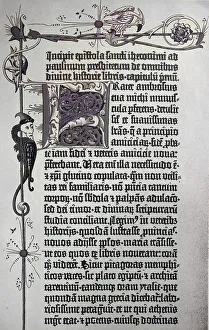 Incipit epistola sancti iheronimi ad
paulinum presbiterum de omnibus
divine historie libris. capitulū p̄mū.
Frater ambrosius
tua michi munus-
cula perferens. detu-
lit simul et suavissimas
litteras. que a principio
amiciciarum. fidē proba-
te iam fidei et veteris amicicie nova
preferebant. Vera enī illa necessitudo ē.
et xpī glutino copulata. quam non utili-
tas rei familiaris. non presencia tantum
corporum. nō subdola et palpans adulacō.
sed dei timor. et divinarum scripturarum
studia conciliant. Legimus in veteribus
historiis. quosdam lustrasse provīcias.
novos adisse populos. maria transisse.
ut eos quos ex libris noverant: coram quoque
viderent. Sicut pitagoras memphi-
ticos vates. sic plato egiptum et archi-
tam tarentinum. eandemque oram ytalie. que
quondam magna grecia dicebatur: labo-
riosissime peragravit. et ut qui athenis
mgr̄ erat. et potens. cuiusque doctrinas